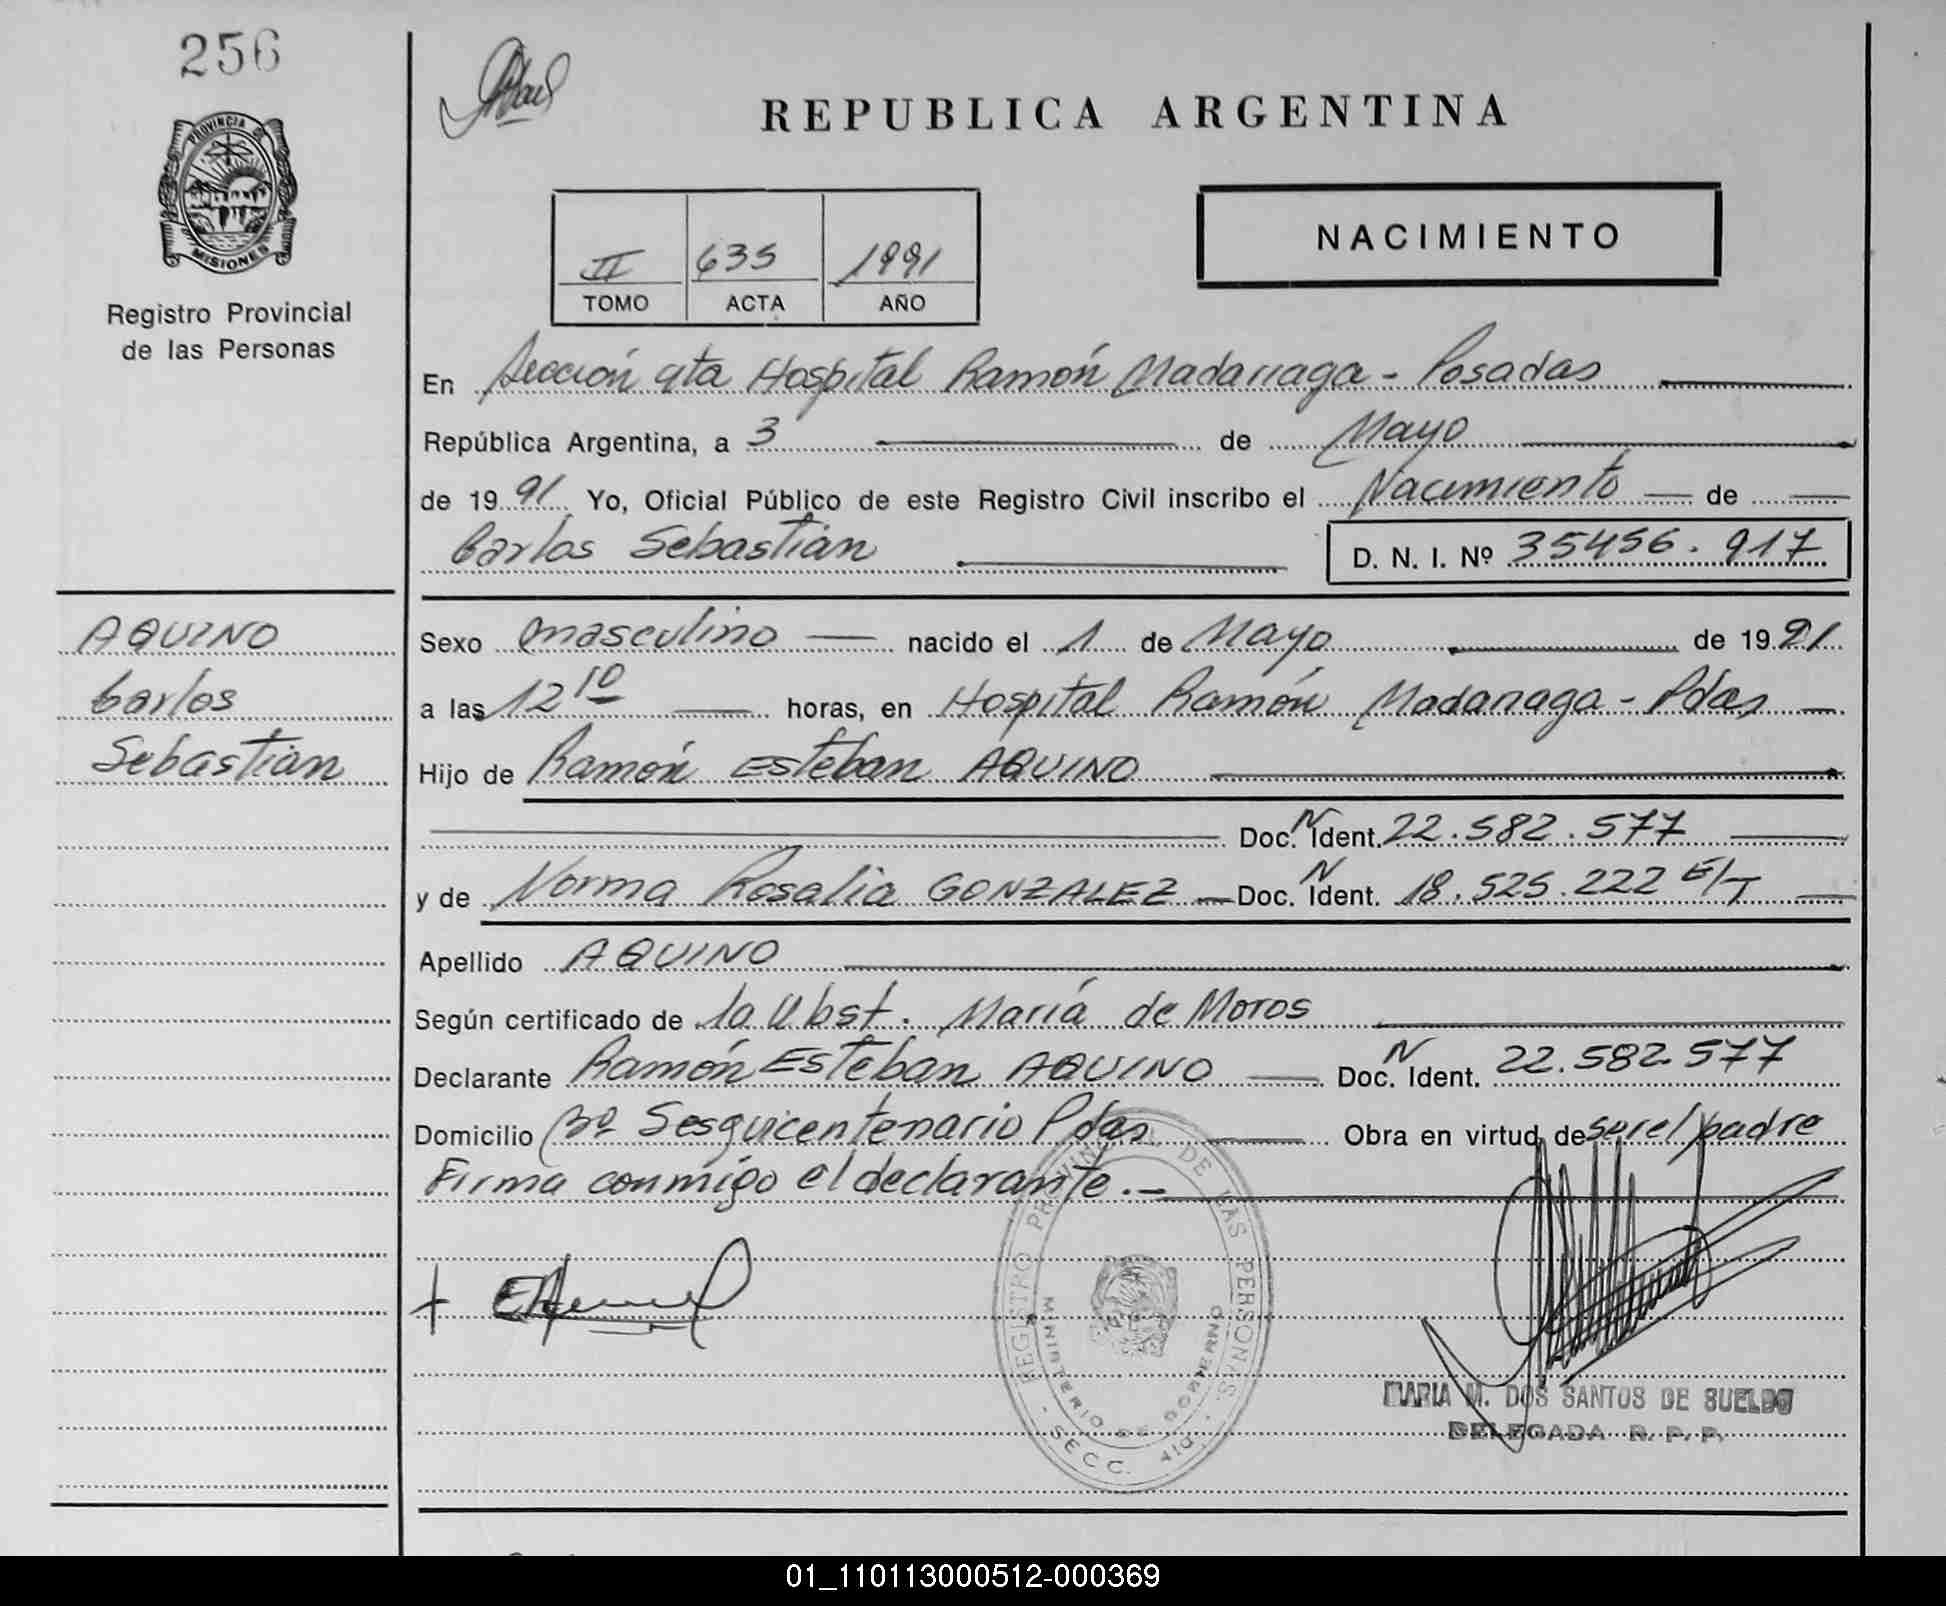 256
PROVINCIA DE
MISIONES
Registro Provincial
de las Personas
REPUBLICA ARGENTINA
NACIMIENTO
II 635 1991
TOMO ACTA AÑO
En Sección 4ta Hospital Ramón Madariaga - Posadas
República Argentina, a 3 de Mayo
de 1991 Yo, Oficial Público de este Registro Civil inscribo el Nacimiento de
Carlos Sebastián D. N. I. Nº 35456.917
AQUINO
Carlos
Sebastián
Sexo masculino nacido el 1 de Mayo de 1991
a las 12 10 horas, en Hospital Ramón Madariaga - Pdas
Hijo de Ramón Esteban AQUINO
Doc. N Ident. 22.582.577
y de Norma Rosalia GONZALEZ Doc. N Ident. 18.525.222 E/T
Apellido AQUINO
Según certificado de la Obst. María de Moros
Declarante Ramón Esteban AQUINO Doc. N Ident. 22.582.577
Domicilio Bº Sesquicentenario Pdas Obra en virtud de ser el padre
Firma conmigo el declarante.-
REGISTRO PROVINCIAL DE LAS PERSONAS
MINISTERIO DE GOBIERNO
SECC. 4ta.
MARIA M. DOS SANTOS DE SUELDO
DELEGADA R. P. P.
01_110113000512-000369